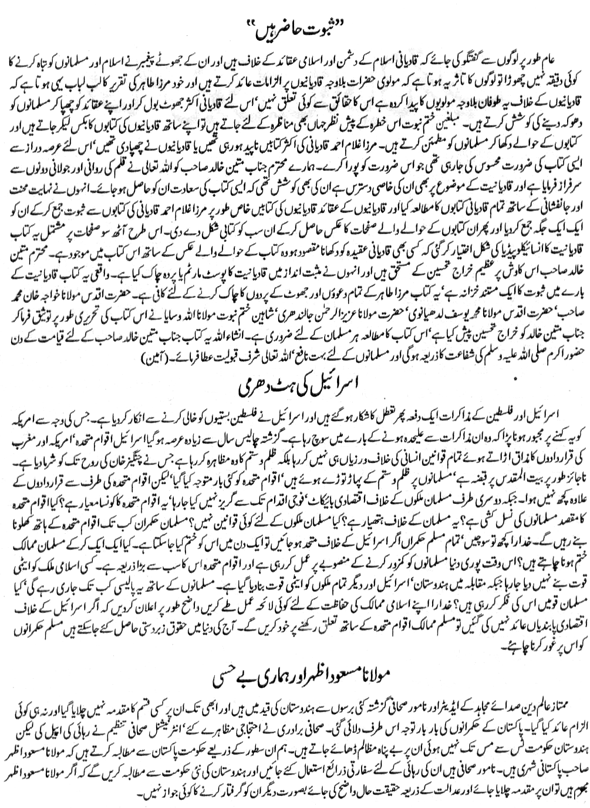 ”ثبوت حاضر ہیں“
عام طور پر لوگوں سے گفتگو کی جائے کہ قادیانی اسلام کے دشمن اور اسلامی عقائد کے خلاف ہیں اور ان کے جھوٹے پیغمبر نے اسلام اور مسلمانوں کو تباہ کرنے کا
کوئی دقیقہ نہیں چھوڑا تو لوگوں کا تاثر یہ ہوتا ہے کہ مولوی حضرات بلاوجہ قادیانیوں پر الزامات عائد کرتے ہیں اور خود مرزا طاہر کی تقریر کا لب لباب یہی ہوتا ہے کہ
قادیانیوں کے خلاف یہ طوفان بلاوجہ مولویوں کا پیدا کردہ ہے اس کا حقائق سے کوئی تعلق نہیں‘ اس لئے قادیانی اکثر جھوٹ بول کر اور اپنے عقائد کو چھپا کر مسلمانوں کو
دھوکہ دینے کی کوشش کرتے ہیں۔ مبلغین ختم نبوت اس خطرہ کے پیش نظر جہاں بھی مناظرہ کے لئے جاتے ہیں تو اپنے ساتھ قادیانیوں کی کتابوں کا بکس لیکر جاتے ہیں اور
کتابوں کے حوالے دکھا کر مسلمانوں کو مطمئن کرتے ہیں۔ مرزا غلام احمد قادیانی کی اکثر کتابیں ناپید ہو رہی تھیں یا قادیانیوں نے چھپادی تھیں‘ اس لئے عرصہ دراز سے
ایسی کتاب کی ضرورت محسوس کی جارہی تھی جو اس ضرورت کو پورا کرے۔ ہمارے محترم جناب متین خالد صاحب کو اللہ تعالیٰ نے قلم کی روانی اور جولانی دونوں سے
سرفراز فرمایا ہے اور قادیانیت کے موضوع پر بھی ان کی خاصی دسترس ہے ان کی بھی کوشش تھی کہ ایسی کتاب کی سعادت ان کو حاصل ہوجائے۔ انہوں نے نہایت محنت
اور جانفشانی کے ساتھ تمام قادیانی کتابوں کا مطالعہ کیا اور قادیانیوں کے عقائد قادیانیوں کی کتابیں خاص طور پر مرزا غلام احمد قادیانی کی کتابوں سے ثبوت جمع کرکے ان کو
ایک ایک جگہ جمع کردیا اور پھر ان کتابوں کے حوالے والے صفحات کا عکس حاصل کرکے ان سب کو کتابی شکل دے دی۔ اس طرح آٹھ سو صفحات پر مشتمل یہ کتاب
قادیانیت کا انسائیکلوپیڈیا کی شکل اختیار کر گئی کہ کسی بھی قادیانی عقیدہ کو دکھانا مقصود ہو وہ کتاب کے حوالے والے عکس کے ساتھ اس کتاب میں موجود ہے۔ محترم متین
خالد صاحب اس کاوش پر عظیم خراج تحسین کے مستحق ہیں اور انہوں نے مثبت انداز میں قادیانیت کا پوسٹ مارٹم یا پردہ چاک کیا ہے۔ واقعی یہ کتاب قادیانیت کے
بارے میں ثبوت کا ایک مستند خزانہ ہے‘ یہ کتاب مرزا طاہر کے تمام دعووں اور جھوٹ کے پردوں کا چاک کرنے کے لئے کافی ہے۔ حضرت اقدس مولانا خواجہ خان محمد
صاحب‘ حضرت اقدس مولانا محمد یوسف لدھیانوی‘ حضرت مولانا عزیز الرحمٰن جالندھری‘ شاہین ختم نبوت مولانا اللہ وسایا نے اس کتاب کی تحریری طور پر توثیق فرما کر
جناب متین خالد کو خراج تحسین پیش کیا ہے‘ اس کتاب کا مطالعہ ہر مسلمان کے لئے ضروری ہے۔ انشاء اللہ یہ کتاب جناب متین خالد صاحب کے لئے قیامت کے دن
حضور اکرم صلی اللہ علیہ وسلم کی شفاعت کا ذریعہ ہوگی اور مسلمانوں کے لئے بہت نافع‘ اللہ تعالیٰ شرف قبولیت عطا فرمائے۔ (آمین)
اسرائیل کی ہٹ دھرمی
اسرائیل اور فلسطین کے مذاکرات ایک دفعہ پھر تعطل کا شکار ہوگئے ہیں اور اسرائیل نے فلسطین بستیوں کو خالی کرنے سے انکار کردیا ہے۔ جس کی وجہ سے امریکہ
کو یہ کہنے پر مجبور ہونا پڑا کہ وہ ان مذاکرات سے علیحدہ ہونے کے بارے میں سوچ رہا ہے۔ گزشتہ چالیس سال سے زیادہ عرصہ ہوگیا اسرائیل اقوام متحدہ‘ امریکہ اور مغرب
کی قراردادوں کا مذاق اڑاتے ہوئے تمام قوانین انسانی کی خلاف ورزیاں ہی نہیں کررہا بلکہ ظلم وستم کا وہ مظاہرہ کررہا ہے جس نے چنگیز خان کی روح تک کو شرمادیا ہے۔
ناجائز طور پر بیت المقدس پر قبضہ ہے‘ مسلمانوں پر ظلم وستم کے پہاڑ توڑے ہوئے ہیں‘ اقوام متحدہ کو کئی بار متوجہ کیا گیا‘ لیکن اقوام متحدہ کی طرف سے قراردادوں کے
علاوہ کچھ نہیں ہوا۔ جبکہ دوسری طرف مسلمان ملکوں کے خلاف اقتصادی بائیکاٹ‘ فوجی اقدام تک سے گریز نہیں کیا جارہا‘ یہ اقوام متحدہ کا کونسا معیار ہے؟ کیا اقوام متحدہ کا
مقصد مسلمانوں کی نسل کشی ہے؟ یہ مسلمان کے خلاف ہتھیار ہے؟ کیا مسلمان ملکوں کے لئے کوئی قوانین نہیں؟ مسلمان حکمران کب تک اقوام متحدہ کے ہاتھ کھلونا
بنے رہیں گے۔ خدارا کچھ تو سوچیں‘ تمام مسلم حکمران اگر اسرائیل کے خلاف متحد ہوجائیں تو ایک دن میں اس کو ختم کیا جاسکتا ہے۔ کیا ایک ایک کرکے مسلمان ممالک
ختم ہونا چاہتے ہیں؟ اس وقت پوری دنیا مسلمانوں کو کمزور کرنے کے منصوبے پر عمل کررہی ہے اور اقوام متحدہ اس کا سب سے بڑا ذریعہ ہے۔ کسی اسلامی ملک کو ایٹمی
قوت بنے نہیں دیا جارہا جبکہ مقابلہ میں ہندوستان‘ اسرائیل اور دیگر تمام ملکوں کو ایٹمی قوت بنادیا گیا ہے۔ مسلمانوں کے ساتھ یہ پالیسی کب تک جاری رہے گی‘ کیا
مسلمان قومیں اس کی فکر کررہی ہیں؟ خدارا اپنے اسلامی ممالک کی حفاظت کے لئے کوئی لائحہ عمل طے کریں واضح طور پر اعلان کردیں کہ اگر اسرائیل کے خلاف
اقتصادی پابندیاں عائد نہیں کی گئیں تو مسلم ممالک اقوام متحدہ کے ساتھ تعلق رکھنے پر خود کریں گے۔ آج کی دنیا میں حقوق زبردستی حاصل کئے جاسکتے ہیں مسلم حکمرانوں
کو اس پر غور کرنا چاہئے۔
مولانا مسعود اظہر اور ہماری بے حسی
ممتاز عالم دین صدائے مجاہد کے ایڈیٹر اور نامور صحافی گزشتہ کئی برسوں سے ہندوستان کی قید میں ہیں اور ابھی تک ان پر کسی قسم کا مقدمہ نہیں چلایا گیا اور نہ ہی کوئی
الزام عائد کیا گیا۔ پاکستان کے حکمرانوں کی بار بار توجہ اس طرف دلائی گئی۔ صحافی برادری نے احتجاجی مظاہرے کئے‘ انٹرنیشنل صحافی تنظیم نے رہائی کی اپیل کی لیکن
ہندوستان حکومت ٹس سے مس تک نہیں ہوئی ان پر بے پناہ مظالم ڈھائے جاتے ہیں۔ ہم ان سطور کے ذریعے حکومت پاکستان سے مطالبہ کرتے ہیں کہ مولانا مسعود اظہر
صاحب پاکستانی شہری ہیں۔ نامور صحافی ہیں ان کی رہائی کے لئے سفارتی ذرائع استعمال کئے جائیں اور ہندوستان کی نئی حکومت سے مطالبہ کریں گے کہ اگر مولانا مسعود اظہر
مجرم ہیں تو ان پر مقدمہ چلایا جائے اور عدالت کے ذریعہ حقیقت حال واضح کی جائے بصورت دیگر ان کو گرفتار کرنے کا کوئی جواز نہیں۔